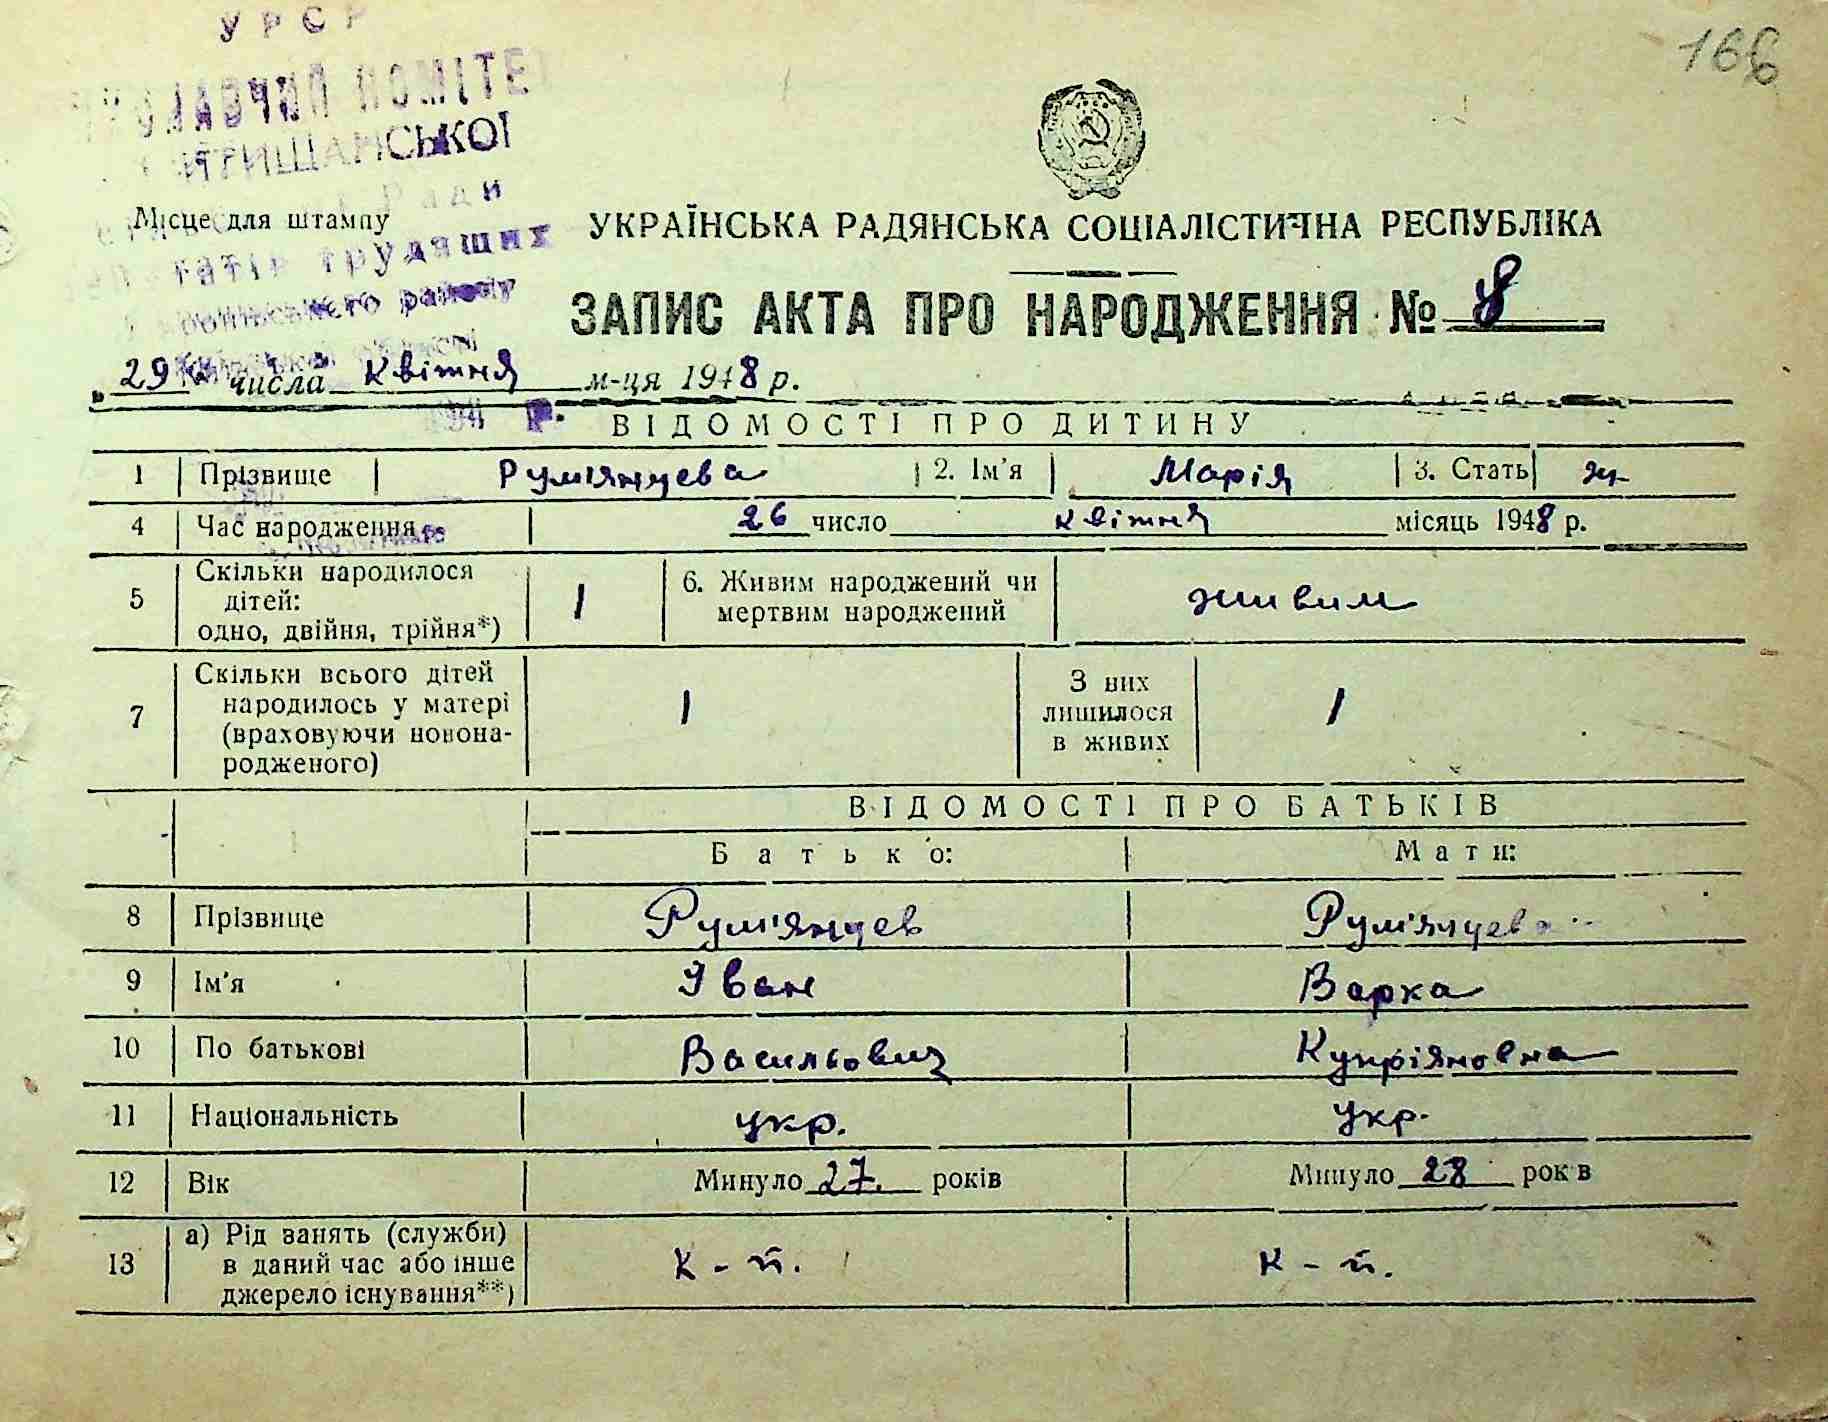 166
УРСР
КОМІТЕ
СЬКОЇ
Ради
Місце для штампу
трудящих
району
УКРАЇНСЬКА РАДЯНСЬКА СОЦІАЛІСТИЧНА РЕСПУБЛІКА
ЗАПИС АКТА ПРО НАРОДЖЕННЯ № 8
„29 числа квітня м-ця 1948 р.
ВІДОМОСТІ ПРО ДИТИНУ
1 Прізвище Румянцева 2. Ім'я Марія 3. Стать ж
4 Час народження 26 число квітня місяць 1948 р.
5 Скільки народилося дітей: одно, двійня, трійня*) 1 6. Живим народжений чи мертвим народжений живим
7 Скільки всього дітей народилось у матері (враховуючи новона-родженого) 1 З них лишилося в живих 1
ВІДОМОСТІ ПРО БАТЬКІВ
Батько: Мати:
8 Прізвище Рум'янцев Рум'янцева
9 Ім'я Іван Варка
10 По батькові Васильович Купріяновна
11 Національність укр. укр.
12 Вік Минуло 27. років Минуло 28 рок в
13 а) Рід занять (служби) в даний час або інше джерело існування**) к-п. к-п.